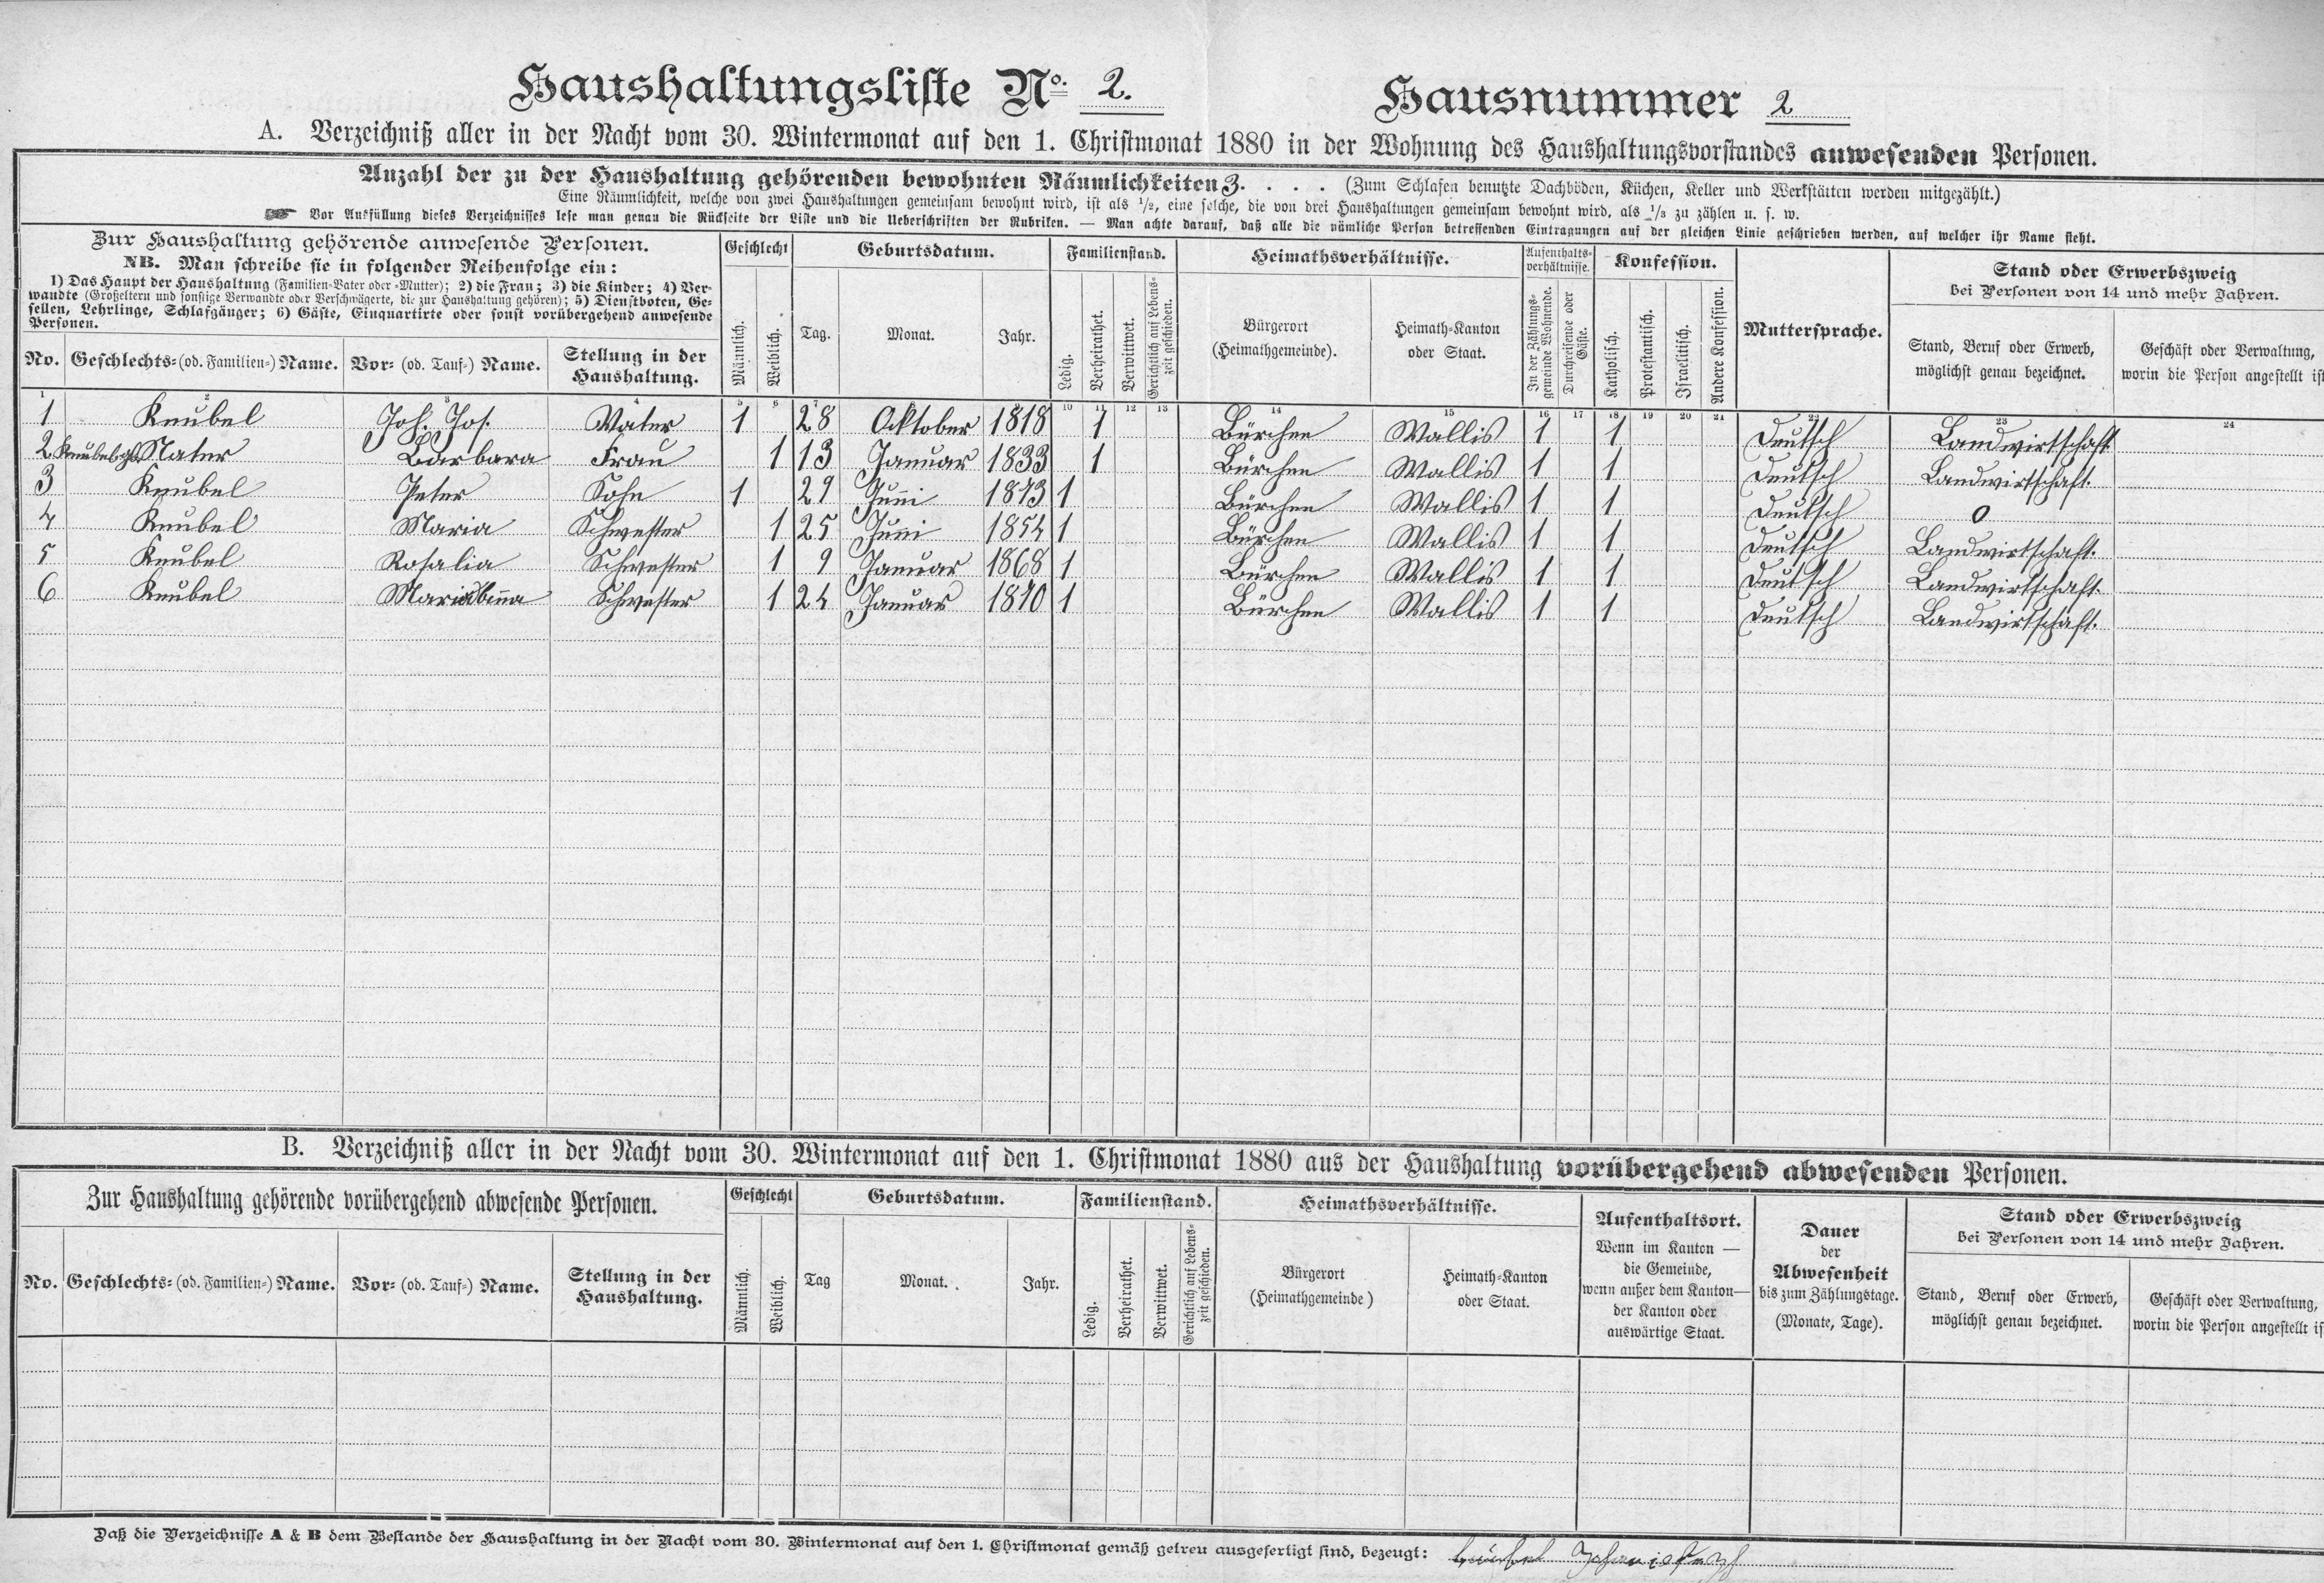 Haushaltungsliste No. 2.
Hausnummer 2
A. Verzeichniß aller in der Nacht vom 30. Wintermonat auf den 1. Christmonat 1880 in der Wohnung des Haushaltungsvorstandes anwesenden Personen.
Anzahl der zu der Haushaltung gehörenden bewohnten Räumlichkeiten 3. . . . (Zum Schlafen benutzte Dachböden, Küchen, Keller und Werkstätten werden mitgezählt.)
Eine Räumlichkeit, welche von zwei Haushaltungen gemeinsam bewohnt wird, ist als 1/2, eine solche, die von drei Haushaltungen gemeinsam bewohnt wird, als 1/3 zu zählen u. s. w.
Vor Ausfüllung dieses Verzeichnisses lese man genau die Rückseite der Liste und die Ueberschriften der Rubriken. — Man achte darauf, daß alle die nämliche Person betreffenden Eintragungen auf der gleichen Linie geschrieben werden, auf welcher ihr Name steht.
Zur Haushaltung gehörende anwesende Personen.
NB. Man schreibe sie in folgender Reihenfolge ein:
1) Das Haupt der Haushaltung (Familien-Vater oder -Mutter); 2) die Frau; 3) die Kinder; 4) Ver-
wandte (Großeltern und sonstige Verwandte oder Verschwägerte, die zur Haushaltung gehören); 5) Dienstboten, Ge-
sellen, Lehrlinge, Schlafgänger; 6) Gäste, Einquartirte oder sonst vorübergehend anwesende
Personen.
No. Geschlechts- (od. Familien-) Name. Vor- (od. Tauf-) Name. Stellung in der
Haushaltung.
Geschlecht
Männlich. Weiblich.
Geburtsdatum.
Tag. Monat. Jahr.
Familienstand.
Ledig. Verheirathet. Verwittwet. Gerichtlich auf Lebens-
zeit geschieden.
Heimathsverhältnisse.
Bürgerort
(Heimathgemeinde).
Heimath-Kanton
oder Staat.
Aufenthalts-
verhältnisse.
In der Zählungs-
gemeinde Wohnende.
Durchreisende oder
Gäste.
Konfession.
Katholisch. Protestantisch. Israelitisch. Andere Konfession.
Muttersprache.
Stand oder Erwerbszweig
bei Personen von 14 und mehr Jahren.
Stand, Beruf oder Erwerb,
möglichst genau bezeichnet.
Geschäft oder Verwaltung,
worin die Person angestellt ist
1 2 3 4 5 6 7 10 11 12 13 14 15 16 17 18 19 20 21 22 23 24
1 Knubel Joh. Jos. Vater 1 28 Oktober 1818 1 Bürchen Wallis 1 1 Deutsch Landwirtschaft
2 Knubel gb. Nater Barbara Frau 1 13 Januar 1833 1 Bürchen Wallis 1 1 Deutsch Landwirtschaft.
3 Knubel Peter Sohn 1 29 Juni 1873 1 Bürchen Wallis 1 1 Deutsch 0
4 Knubel Maria Schwester 1 25 Juni 1854 1 Bürchen Wallis 1 1 Deutsch Landwirtschaft.
5 Knubel Rosalia Schwester 1 9 Januar 1868 1 Bürchen Wallis 1 1 Deutsch Landwirtschaft.
6 Knubel Schwester 1 24 Januar 1870 1 Bürchen Wallis 1 1 Deutsch Landwirtschaft.
B. Verzeichniß aller in der Nacht vom 30. Wintermonat auf den 1. Christmonat 1880 aus der Haushaltung vorübergehend abwesenden Personen.
Zur Haushaltung gehörende vorübergehend abwesende Personen.
No. Geschlechts- (od. Familien-) Name. Vor- (od. Tauf-) Name. Stellung in der
Haushaltung.
Geschlecht
Männlich. Weiblich.
Geburtsdatum.
Tag Monat. Jahr.
Familienstand.
Ledig. Verheirathet. Verwittwet. Gerichtlich auf Lebens-
zeit geschieden.
Heimathsverhältnisse.
Bürgerort
(Heimathgemeinde)
Heimath-Kanton
oder Staat.
Aufenthaltsort.
Wenn im Kanton —
die Gemeinde,
wenn außer dem Kanton—
der Kanton oder
auswärtige Staat.
Dauer
der
Abwesenheit
bis zum Zählungstage.
(Monate, Tage).
Stand oder Erwerbszweig
bei Personen von 14 und mehr Jahren.
Stand, Beruf oder Erwerb,
möglichst genau bezeichnet.
Geschäft oder Verwaltung,
worin die Person angestellt is
Daß die Verzeichnisse A & B dem Bestande der Haushaltung in der Nacht vom 30. Wintermonat auf den 1. Christmonat gemäß getreu ausgefertigt sind, bezeugt: